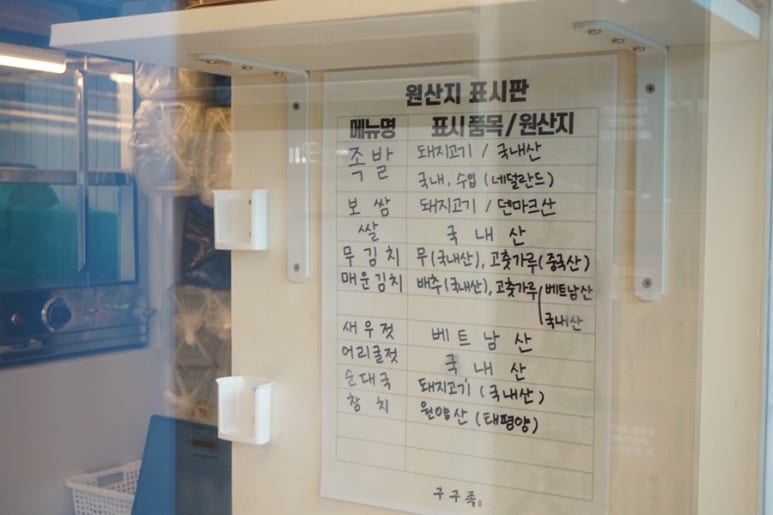 원산지 표시판
메뉴명 표시품목/원산지
족발 돼지고기 / 국내산
국내, 수입 (네덜란드)
보쌈 돼지고기 / 덴마크산
쌀 국내산
무김치 무(국내산), 고춧가루(중국산)
매운김치 배추(국내산), 고춧가루(베트남산
국내산
새우젓 베트남산
어리굴젓 국내산
순대국 돼지고기 (국내산)
참치 원양산 (태평양)
구구족